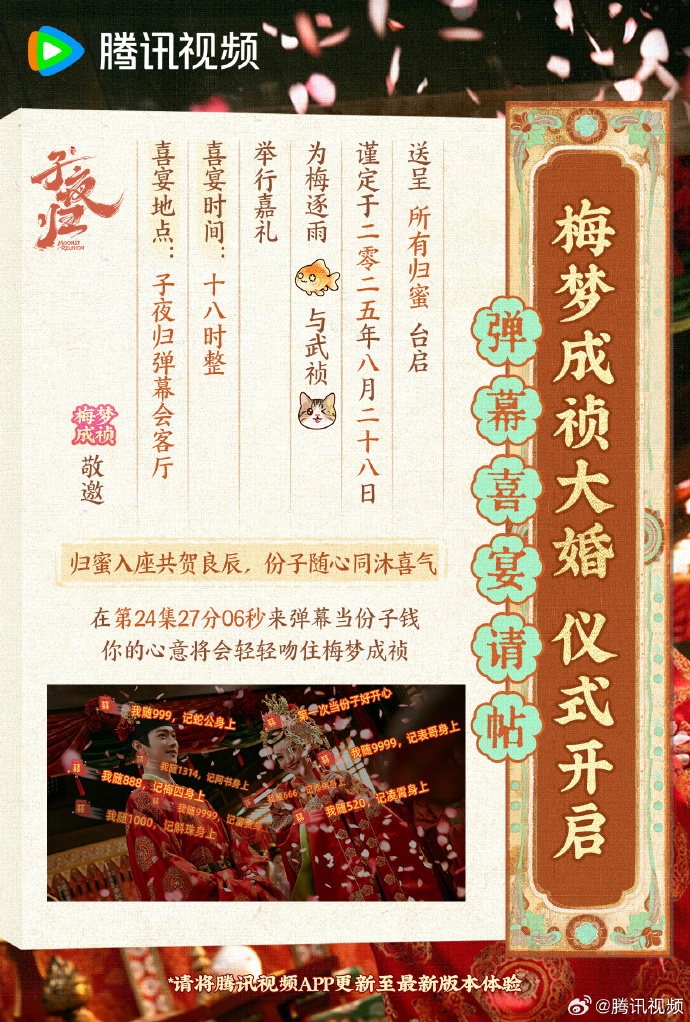 腾讯视频
梅梦成祯大婚 仪式开启
弹幕喜宴请帖
送呈 所有归蜜 台启
谨定于二零二五年八月二十八日
为梅逐雨 与武祯
举行嘉礼
喜宴时间：十八时整
喜宴地点：子夜归弹幕会客厅
梅梦
成祯
敬邀
子夜归
MOONLIT
REUNION
归蜜入座共贺良辰，份子随心同沐喜气
在第24集27分06秒来弹幕当份子钱
你的心意将会轻轻吻住梅梦成祯
我随999，记蛇公身上
第一次当份子好开心
我随9999，记表哥身上
我随1314，记阿书身上
我随888，记梅四身上
我随520，记凌霄身上
我随1000，记斛珠身上
*请将腾讯视频APP更新至最新版本体验
@腾讯视频